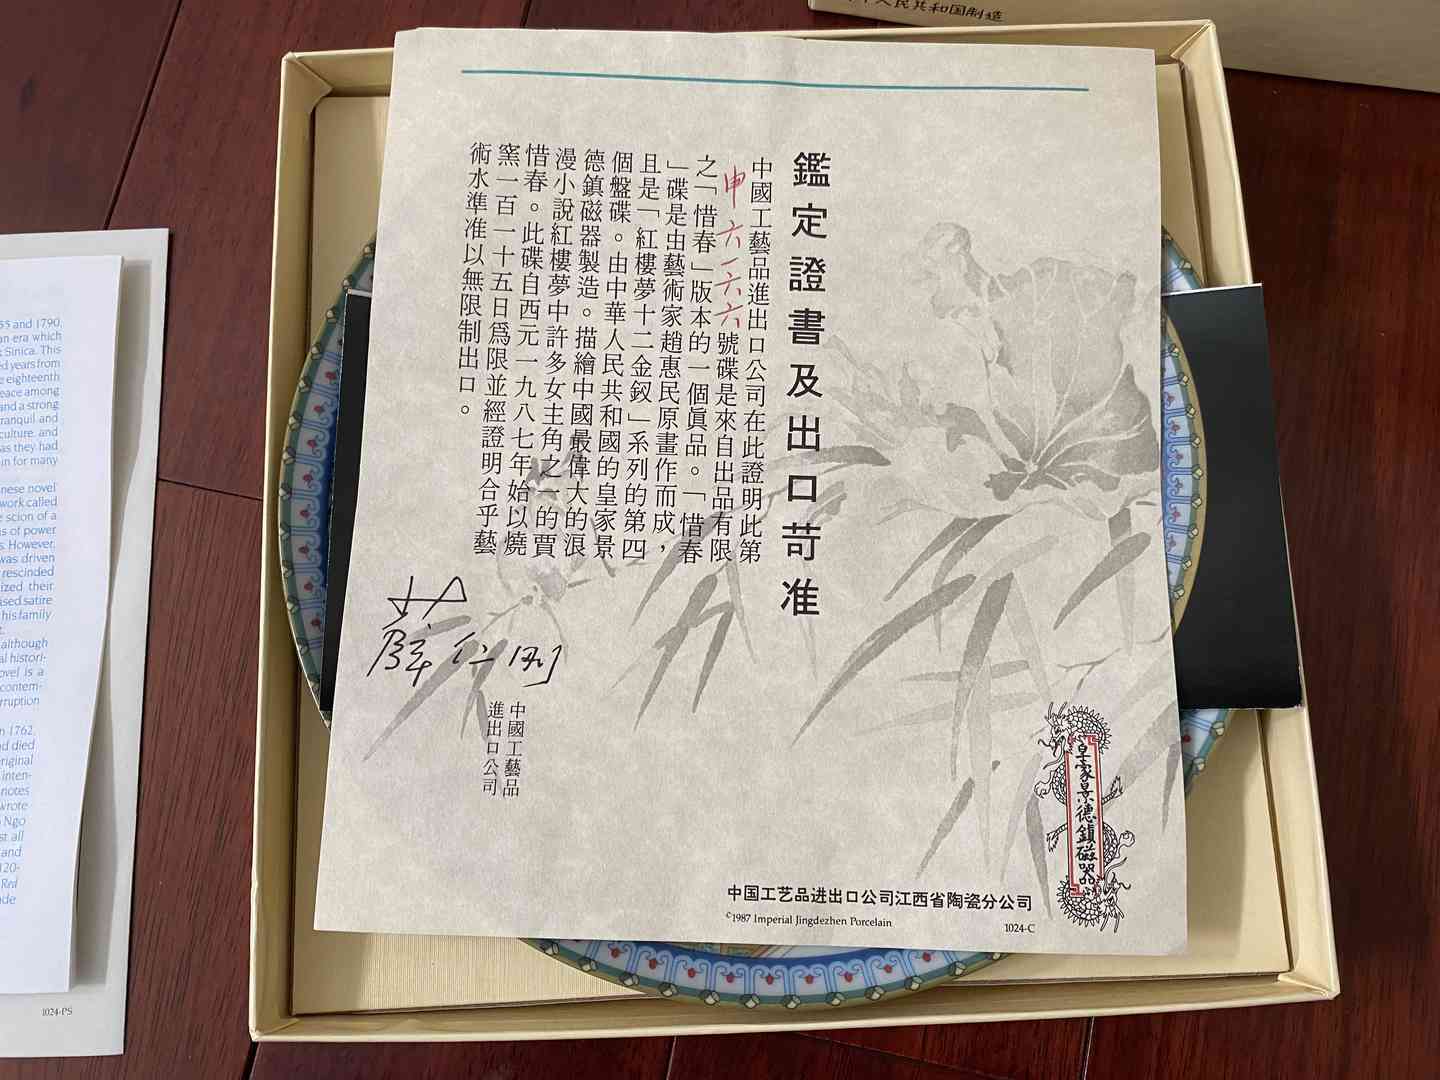 人民共和国制造
鑑定證書及出口苛准
中國工藝品進出口公司在此證明此第
申六一六六號碟是來自出品有限
之「惜春」版本的一個眞品。「惜春
」碟是由藝術家趙惠民原畫作而成，
且是「紅樓夢十二金釵」系列的第四
個盤碟。由中華人民共和國的皇家景
德鎮磁器製造。描繪中國最偉大的浪
漫小說紅樓夢中許多女主角之一的賈
惜春。此碟自西元一九八七年始以燒
窯一百一十五日爲限並經證明合乎藝
術水準准以無限制出口。
薛仁刚
中國工藝品
進出口公司
皇家景德鎮磁器
中国工艺品进出口公司江西省陶瓷分公司
©1987 Imperial Jingdezhen Porcelain
1024-C
55 and 1790,
an era which
Sinica. This
ed years from
eighteenth
peace among
and a strong
tranquil and
culture, and
as they had
in for many
nese novel
work called
scion of a
s of power
s. However,
was driven
rescinded
ized their
used satire
his family
although
al histori-
ovel is a
contem-
rruption
n 1762.
nd died
original
inten-
notes
wrote
Ngo
st all
and
120-
Red
ade
1024-PS